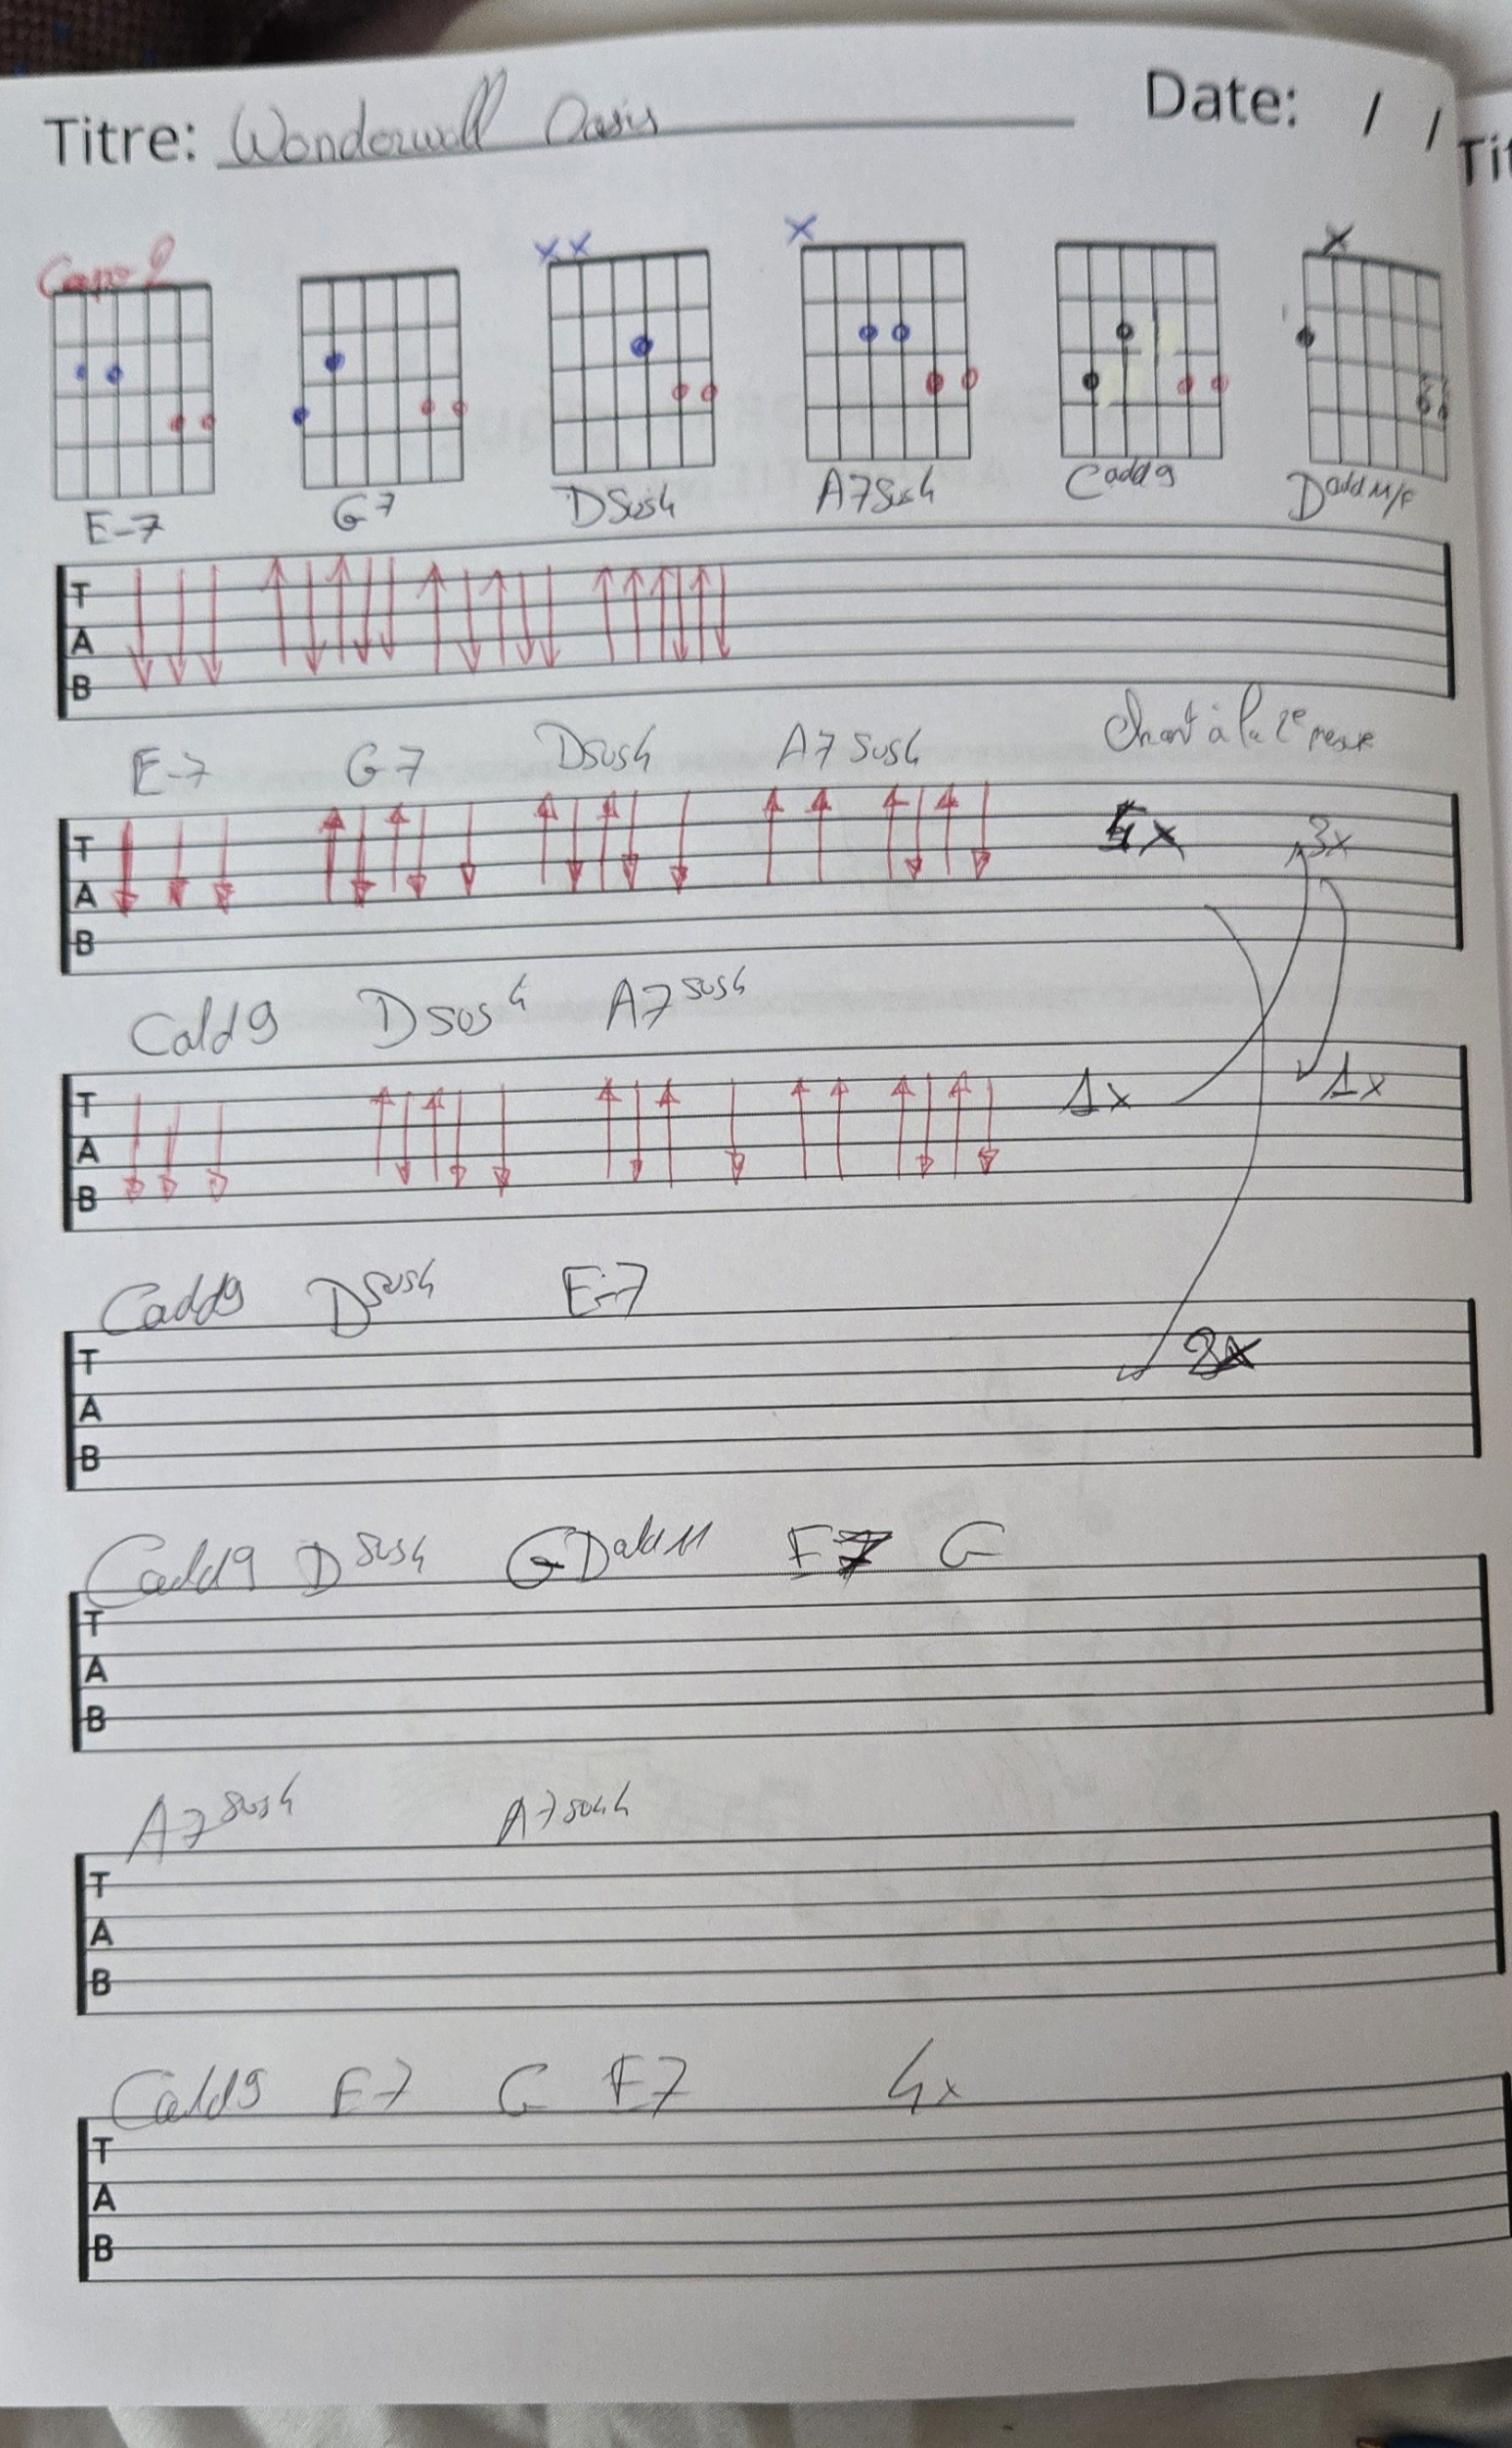 Titre: Wonderwall Oasis Date: / /
Tit
Capo 2
x x x x
E-7 G7 DSus4 A7Sus4 Cadd9 Dadd11/F
T
A
B
E-7 G7 Dsus4 A7sus4 Chant à la 2e
T
A
B
4x 3x
Cadd9 Dsus4 A7sus4
T
A
B
1x 1x
Cadd9 Dsus4 E-7
T
A
B
2x
Cadd9 Dsus4 G Dadd11 E7 G
T
A
B
A7sus4 A7sus4
T
A
B
Cadd9 E7 G E7 4x
T
A
B